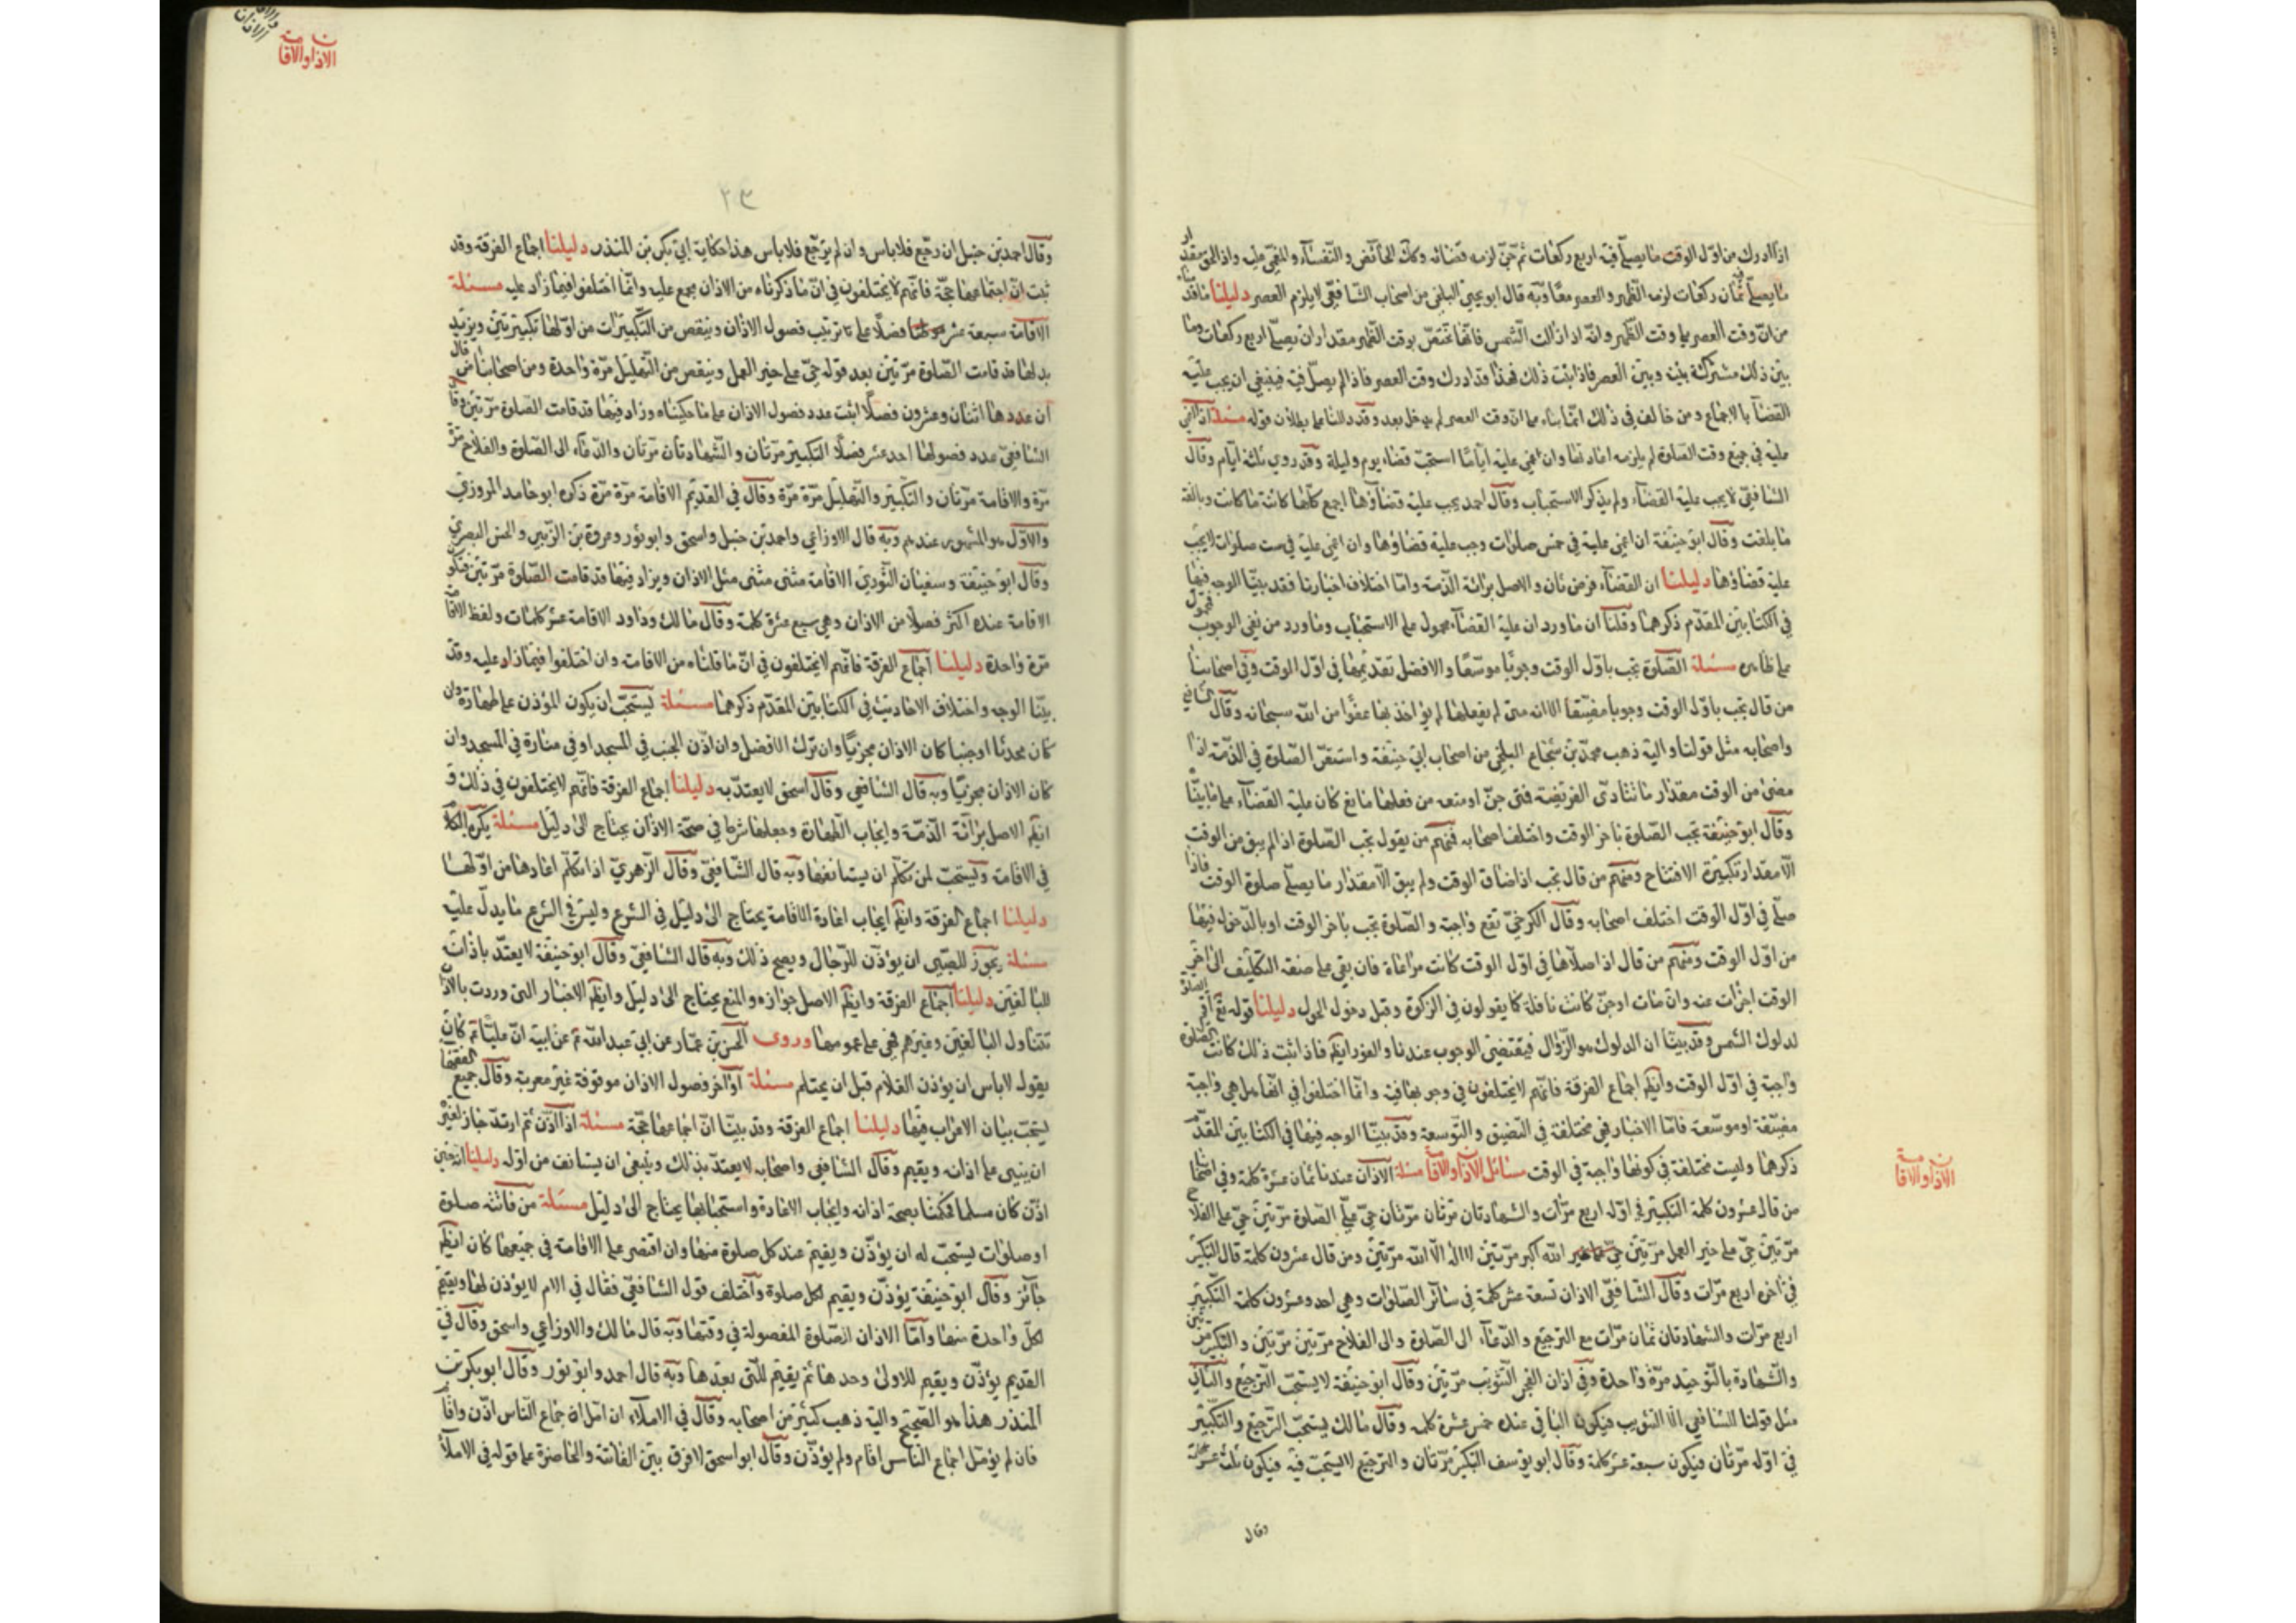 اذا ادرك من اول الوقت ما يصلي فيه اربع ركعات ثم جن لزمه قضائه وكك الحائض والنفساء والمغمى عليه واذا لحق مقدار
ما يصلي فيه ثمان ركعات لزمه الظهر والعصر معا وبه قال ابو يحيى البلخي من اصحاب الشافعي لا يلزم العصر دليلنا ما قدمناه
من ان وقت العصر يلي وقت الظهر وانه اذا زالت الشمس فانها تختص بوقت الظهر مقدار ان يصلي اربع ركعات وما
بين ذلك مشتركة بينه وبين العصر فاذا ثبت ذلك فهذا قد ادرك وقت العصر فاذا لم يصل فيه فينبغي ان يجب عليه
القضآ بالاجماع ومن خالف في ذلك انما بناه على ان وقت العصر لم يدخل بعد وقد دللنا على بطلان قوله مسئلة اذا اغمي
عليه في جميع وقت الصلوة لم يلزمه اعادتها وان اغمي عليه اياما استحب قضاء يوم وليلة وقد روي ثلثة ايام وقال
الشافعي لا يجب عليه القضاء ولم يذكر الاستحباب وقال احمد يجب عليه قضاؤها اجمع كائنا كانت ما كانت وبالغة
ما بلغت وقال ابو حنيفة ان اغمي عليه في خمس صلوات وجب عليه قضاؤها وان اغمي عليه في ست صلوات لا يجب
عليه قضاؤها دليلنا ان القضآء فرض ثان والاصل برائة الذمة واما اختلاف اخبارنا فقد بينا الوجه فيها
في الكتابين المقدم ذكرهما وقلنا ان ما ورد ان عليه القضآء محمول على الاستحباب وما ورد من نفي الوجوب فمحمول
على ظاهره مسئلة الصلوة تجب باول الوقت وجوبا موسعا والافضل تقديمها في اول الوقت وفي اصحابنا
من قال تجب باول الوقت وجوبا مضيقا الا انه متى لم يفعلها لم يؤاخذ بها عفوا من الله سبحانه وقال الشافعي
واصحابه مثل قولنا واليه ذهب محمد بن شجاع البلخي من اصحاب ابي حنيفة واستقر الصلوة في الذمة اذا
مضى من الوقت مقدار ما تتادى الفريضة فمتى جن او منعه من فعلها مانع كان عليه القضآء على ما بينا
وقال ابو حنيفة تجب الصلوة باخر الوقت واختلف اصحابه فمنهم من يقول تجب الصلوة اذا لم يبق من الوقت
الا مقدار تكبيرة الافتتاح ومنهم من قال تجب اذا ضاق الوقت ولم يبق الا مقدار ما يصلي صلوة الوقت فاذا
صلى في اول الوقت اختلف اصحابه وقال الكرخي تقع واجبة والصلوة تجب باخر الوقت او بالدخول فيها
من اول الوقت ومنهم من قال اذا صلاها في اول الوقت كانت مراعاة فان بقي على صفة التكليف الى اخر
الوقت اجزأت عنه وان مات او جن كانت نافلة كما يقولون في الزكوة وقبل دخول الحول دليلنا قوله تع اقم الصلوة
لدلوك الشمس وقد بينا ان الدلوك هو الزوال فيقتضي الوجوب عندنا والفور ايضا فاذا ثبت ذلك كانت الصلوة
واجبة في اول الوقت وايضا اجماع الفرقة فانهم لا يختلفون في وجوبها فيه وانما اختلفوا في انها هل هي واجبة
مضيقة او موسعة فاما الاخبار فهي مختلفة في التضيق والتوسعة وقد بينا الوجه فيها في الكتابين المقدم
ذكرهما وليست مختلفة في كونها واجبة في الوقت مسائل الاذان والاقامة مسئلة الاذان عندنا ثمان عشرة كلمة وفي اصحابنا
من قال عشرون كلمة التكبير في اوله اربع مرات والشهادتان مرتان مرتان حي على الصلوة مرتين حي على الفلاح
مرتين حي على خير العمل مرتين الله اكبر مرتين لا اله الا الله مرتين ومن قال عشرون كلمة قال التكبير
في اخره اربع مرات وقال الشافعي الاذان تسعة عشر كلمة في سائر الصلوات وهي احد وعشرون كلمة التكبير
اربع مرات والشهادتان ثمان مرات مع الترجيع والدعآء الى الصلوة والى الفلاح مرتين مرتين والتكبير مرتين
والشهادة بالتوحيد مرة واحدة وفي اذان الفجر التثويب مرتين وقال ابو حنيفة لا يستحب الترجيع والباقي
مثل قولنا الشافعي الا التثويب فيكون الباقي عنده خمس عشرة كلمه وقال مالك يستحب الترجيع والتكبير
في اوله مرتان فيكون سبعة عشر كلمة وقال ابو يوسف التكبير مرتان والترجيع لا يستحب فيه فيكون ثلث عشر كلمة
وقال
الاذان والاقامة
الاذان والاقامة
٢٣
وقال احمد بن حنبل ان رجع فلا باس وان لم يرجع فلا باس هذا حكاية ابي بكر بن المنذر دليلنا اجماع الفرقة وقد
ثبت ان اجتماعها حجة فانهم لا يختلفون في ان ما ذكرناه من الاذان مجمع عليه وانما اختلفوا فيما زاد عليه مسئلة
الاقامة سبعة عشر فصلا على ترتيب فصول الاذان وينقص من التكبيرات من اولها تكبيرتين ويزيد
بدلها قد قامت الصلوة مرتين بعد قوله حي على خير العمل وينقص من التهليل مرة واحدة ومن اصحابنا من قال
ان عددها اثنان وعشرون فصلا اثبت عدد فصول الاذان على ما حكيناه وزاد فيها قد قامت الصلوة مرتين وقا
الشافعي عدد فصولها احد عشر فصلا التكبير مرتان والشهادتان مرتان والدعاء الى الصلوة والفلاح مرة
مرة والاقامة مرتان والتكبير والتهليل مرة مرة وقال في القديم الاقامة مرة مرة ذكره ابو حامد المروزي
والاول هو المشهور عندهم وبه قال الاوزاعي واحمد بن حنبل واسحق وابو ثور وعروة بن الزبير والحسن البصري
وقال ابو حنيفة وسفيان الثوري الاقامة مثنى مثنى مثل الاذان ويزاد فيها قد قامت الصلوة مرتين فتكون
الاقامة عنده اكثر فصولا من الاذان وهي سبع عشرة كلمة وقال مالك وداود الاقامة عشر كلمات ولفظ الاقامة
مرة واحدة دليلنا اجماع الفرقة فانهم لا يختلفون في ان ما قلناه من الاقامة وان اختلفوا فيما زاد عليه وقد
بينا الوجه واختلاف الاحاديث في الكتابين المقدم ذكرهما مسئلة يستحب ان يكون المؤذن على طهارة وان
كان محدثا او جنبا كان الاذان مجزيا وان ترك الافضل وان اذن الجنب في المسجد او في منارة في المسجد وان
كان الاذان مجزيا وبه قال الشافعي وقال اسحق لا يعتد به دليلنا اجماع الفرقة فانهم لا يختلفون في ذلك و
ايضا الاصل برآئة الذمة وايجاب الطهارة وجعلها شرطا في صحة الاذان يحتاج الى دليل مسئلة يكره الكلام
في الاقامة ويستحب لمن تكلم ان يستانفها وبه قال الشافعي وقال الزهري اذا تكلم اعادها من اولها
دليلنا اجماع الفرقة وايضا ايجاب اعادة الاقامة يحتاج الى دليل في الشرع وليس في الشرع ما يدل عليه
مسئلة يجوز للصبي ان يؤذن للرجال ويصح ذلك وبه قال الشافعي وقال ابو حنيفة لا يعتد باذان
للبالغين دليلنا اجماع الفرقة وايضا الاصل جوازه والمنع يحتاج الى دليل وايضا الاخبار التي وردت بالاذان
تتناول البالغين وغيرهم فهي على عمومها وروى اسحق بن عمار عن ابي عبد الله ع عن ابيه ان عليا ع كان
يقول لا باس ان يؤذن الغلام قبل ان يحتلم مسئلة اواخر فصول الاذان موقوفة غير معربة وقال جميع الفقهآ
يستحب بيان الاعراب فيها دليلنا اجماع الفرقة وقد بينا ان اجماعها حجة مسئلة اذا اذن ثم ارتد جاز لغيره
ان يبني على اذانه ويقيم وقال الشافعي واصحابه لا يعتد بذلك وينبغي ان يستانف من اوله دليلنا انه حين
اذن كان مسلما فحكمنا بصحة اذانه وايجاب الاعادة واستحبابها يحتاج الى دليل مسئلة من فاتته صلوة
او صلوات يستحب له ان يؤذن ويقيم عند كل صلوة منها وان اقتصر على الاقامة في جميعها كان ايضا
جائز وقال ابو حنيفة يؤذن ويقيم لكل صلوة واختلف قول الشافعي فقال في الام لا يؤذن لها ويقيم
لكل واحدة منها واما الاذان الصلوة المفصولة في وقتها وبه قال مالك والاوزاعي واسحق وقال في
القديم يؤذن ويقيم للاولى وحدها ثم يقيم للتي بعدها وبه قال احمد وابو ثور وقال ابو بكر بن
المنذر هذا هو الصحيح واليه ذهب كثير من اصحابه وقال في الاملآء ان امل اجماع الناس اذن واقا
فان لم يؤمل اجماع الناس اقام ولم يؤذن وقال ابو اسحق لا فرق بين الفائتة والحاضرة على قوله في الاملآ